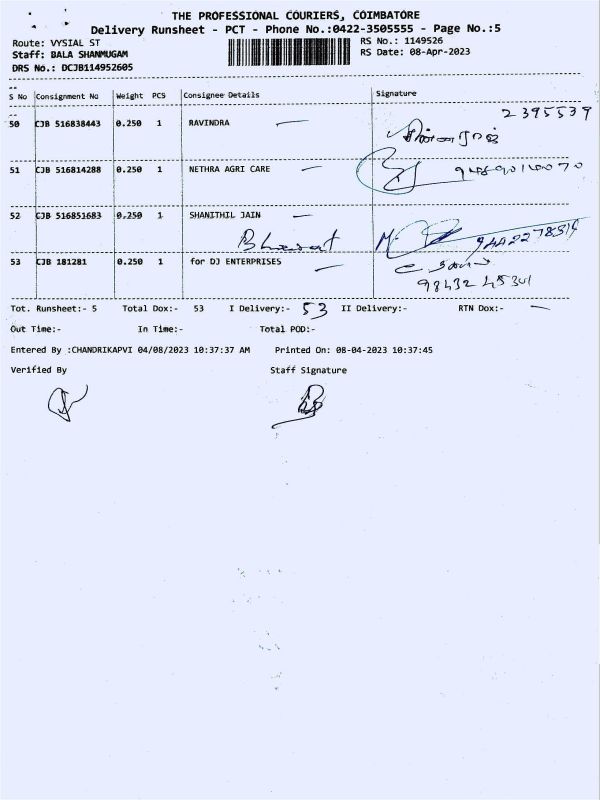 THE PROFESSIONAL COURIERS, COIMBATORE
Delivery Runsheet - PCT - Phone No.:0422-3505555 - Page No.:5
Route: VYSIAL ST
RS No.: 1149526
Staff: BALA SHANMUGAM
RS Date: 08-Apr-2023
DRS No.: DCJB114952605
S No Consignment No Weight PCS Consignee Details Signature
2395539
50 CJB 516838443 0.250 1 RAVINDRA
51 CJB 516814288 0.250 1 NETHRA AGRI CARE
52 CJB 516851683 0.250 1 SHANITHIL JAIN
Bharat
53 CJB 181281 0.250 1 for DJ ENTERPRISES
98432 45301
Tot. Runsheet:- 5 Total Dox:- 53 I Delivery:- 53 II Delivery:- RTN Dox:- —
Out Time:- In Time:- Total POD:-
Entered By :CHANDRIKAPVI 04/08/2023 10:37:37 AM Printed On: 08-04-2023 10:37:45
Verified By Staff Signature